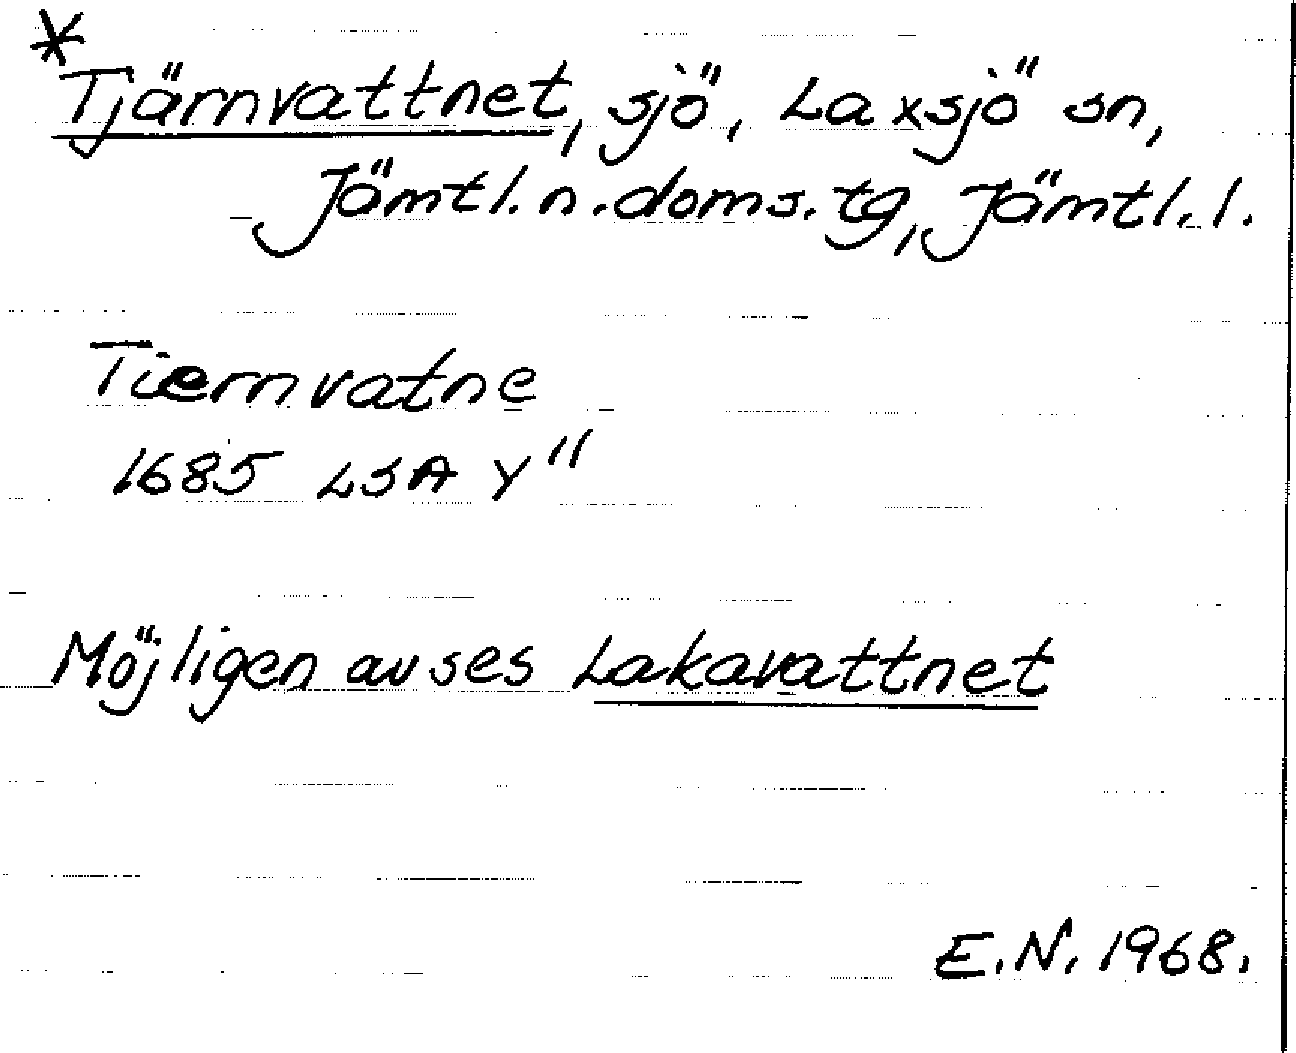 *Tjärnvattnet, sjö, Laxsjö sn,
Jämtl. n. doms. tg, Jämtl. l.
Tiernvatne
1685 LSA Y"
Möjligen avses Lakavattnet
E.N. 1968.